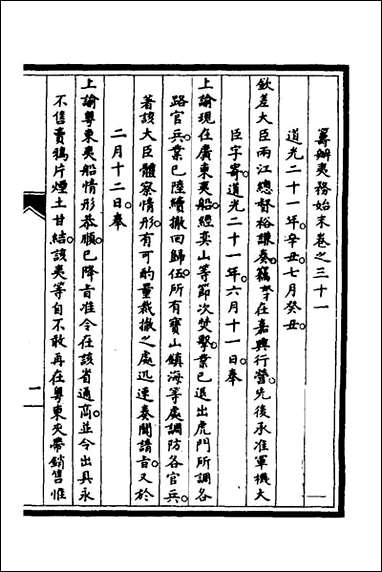 籌辦夷務始末卷之三十一
道光二十一年辛丑七月癸丑
欽差大臣兩江總督裕謙奏竊孥在嘉興行營先後承准軍機大
臣字寄道光二十一年六月十一日奉
上諭現在廣東夷船經奕山等節次焚擊業已退出虎門所調各
路官兵業已陸續撤回歸伍所有寶山鎮海等處調防各官兵
著該大臣體察情形有可酌量裁撤之處迅速奏聞請旨又於
二月十二日奉
上諭粵東夷船情形恭順已降旨准令在該省通商並令出具永
不售賣鴉片煙土甘結該夷等自不敢再在粵東夾帶銷售惟
一